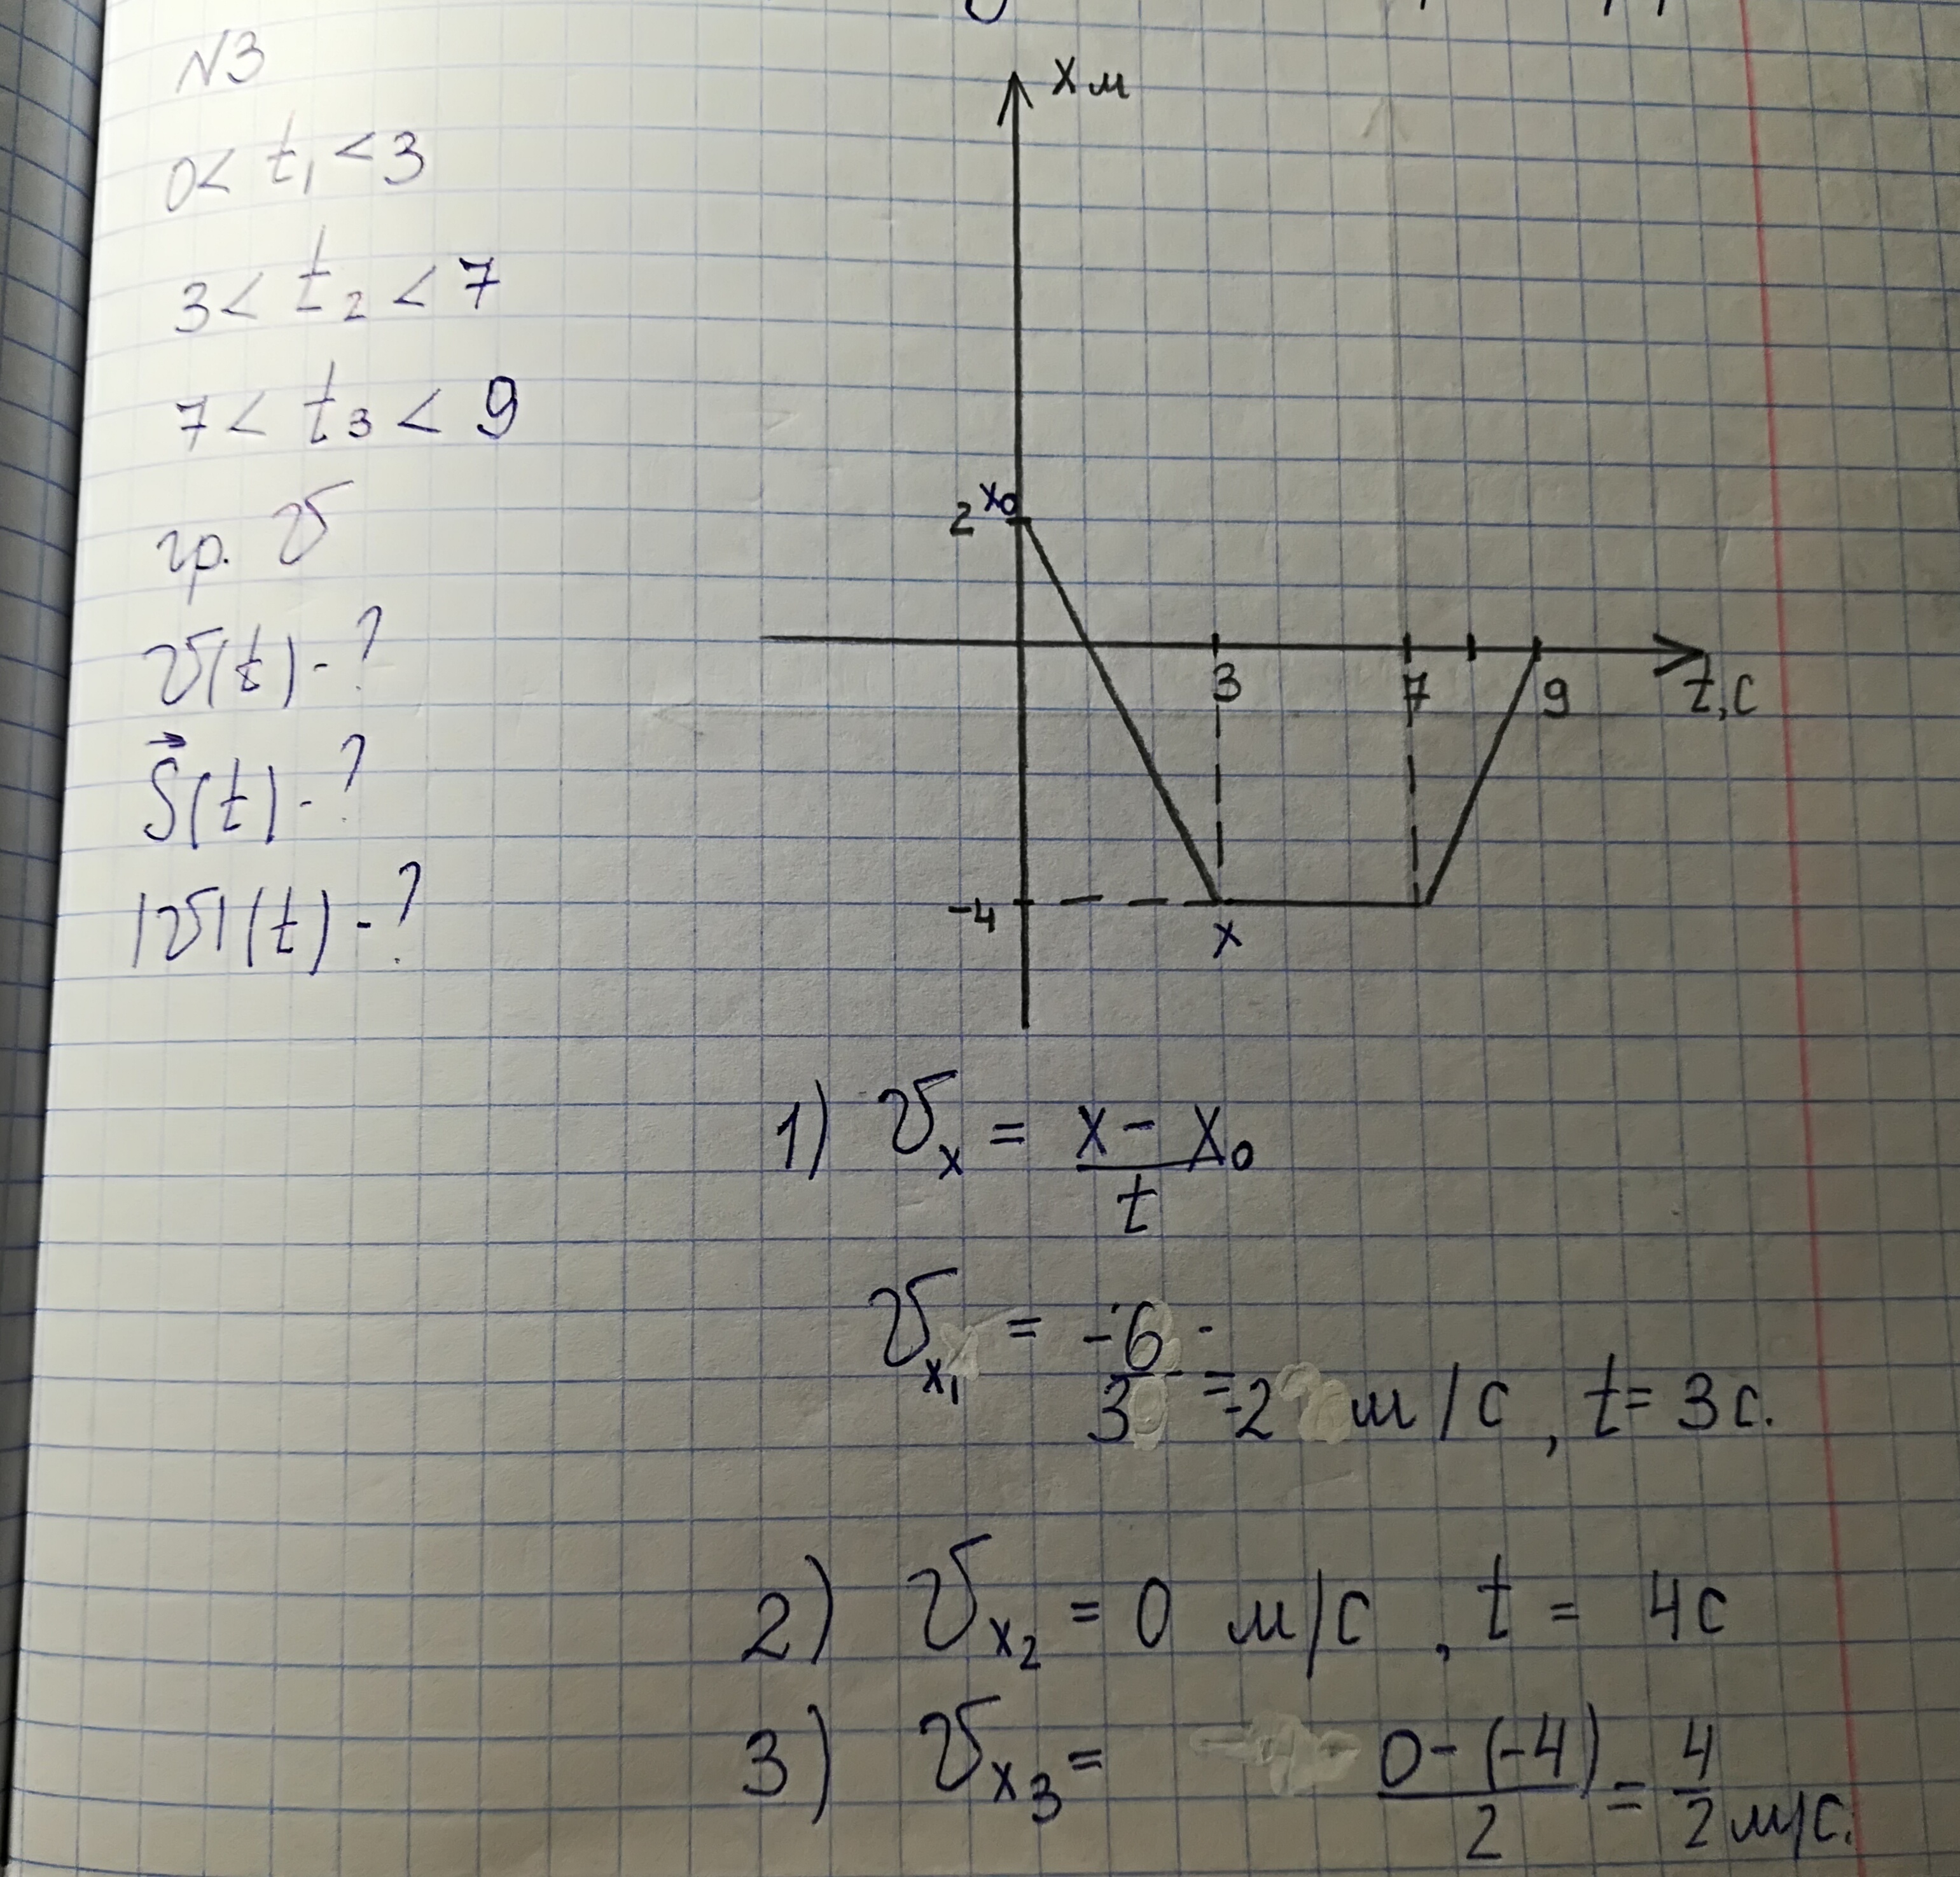 N3
0 < t₁ < 3
3 < t₂ < 7
7 < t₃ < 9
гр. v
v(t) - ?
S⃗(t) - ?
|v|(t) - ?
x м
2 x₀
3 7 9 t, с
-4
x
1) vₓ = (x - x₀)/t
vₓ₁ = -6/3 = -2 м/с, t = 3 с.
2) vₓ₂ = 0 м/с, t = 4 с
3) vₓ₃ = (0 - (-4))/2 = 4/2 м/с.